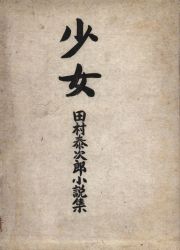 少女
田村泰次郎小説集